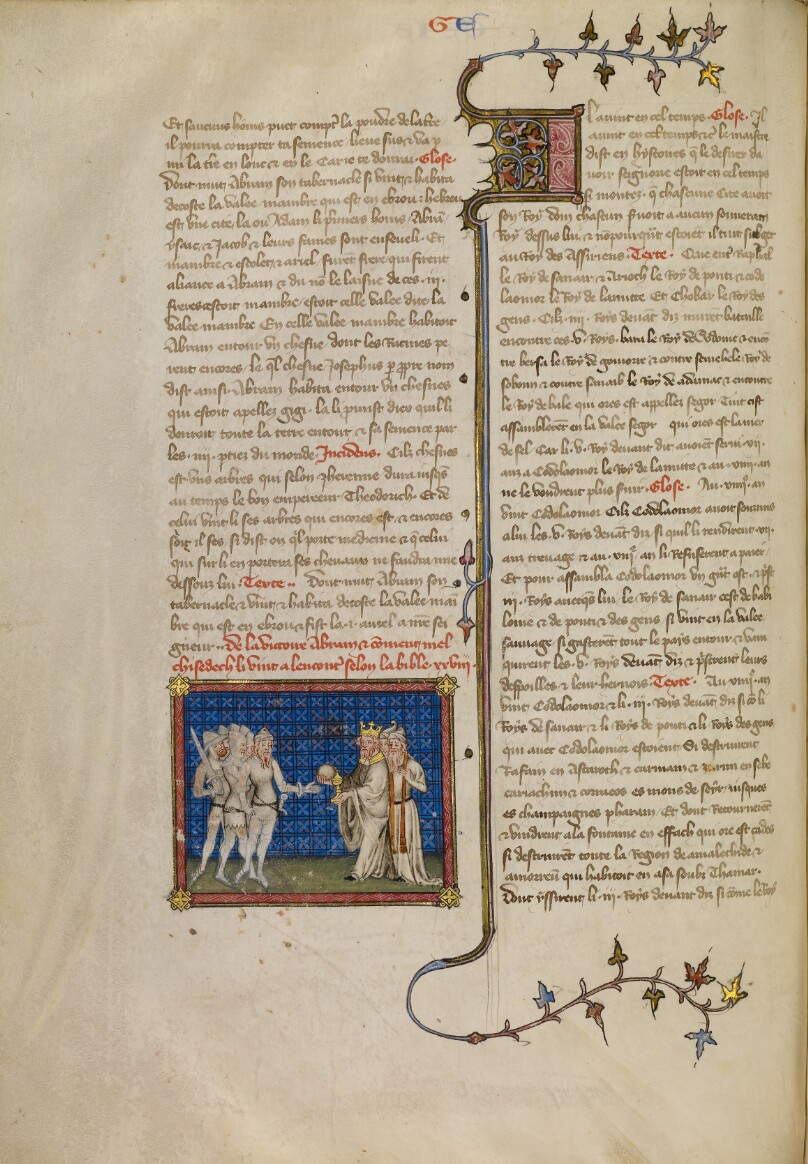 GE
Et saucuns homs puet compter la poudre de la tre
il pourra compter ta semence lieue sus & va p
mi la tre en lonc & en le Car ie te donrai Glose
Dont mut Abram son tabernacle si vint & habita
decoste la valee mambre qui est en ebrou hebron
est vne cite la ou Adam li pmiers homs Abrã
ysaac & Jacob & leurs fames sont enseueli Et
mambre & escolet & aner furent frere qui firent
aliance a Abram & du nõ le laisne de ces iij
freres estoit mambre estoit celle valee dite la
valee mambre En celle valee mambre habitoit
Abram entour vn chesne dont les Racines pe
rent encores le ql chesne Josephus p ppre nom
dist ainsi Abram habita entour vn chesnes
qui estoit apellez gigi la li pmist diex quil li
donroit toute la terre entour & sa semence par
les iiij pties du monde Incidens Cilz chesnes
est vns arbres qui selon Jherome dura iusqs
au temps le bon empereeur Theodorich Et de
celui vint li ses arbres qui encores est & encores
soit il ses si dist on ql porte medicine & q celui
qui sur li en portera ses cheuaux ne fondra mie
dessouz lui Texte Dont mut Abram son
tabernacle & vint & habita decoste la valee mã
bre qui est en ebrou & fist la i autel a nre sei
gneur de la victoire Abram & cõment mel
chisedech li vint a lencontre selon la bible xxviij
l auint en cel temps Glose Il
auint en cel temps & le maistre
dist en hystoires q le desuz da
uoir seignorie estoit en cel temps
si montez q chascune Cite auoit
son Roy dom chascun seruoit a aucun souuerain
Roy dessus lui & nõpourqũt estoiet il tuit subget
au Roy des Assiriens Texte Que
le Roy de sanaar & Arioch le Roy de ponti & codo
laomor le Roy de lamite Et Thobar le Roy des
gens Cilz iiij Roys deuãt diz muret bataille
encontre ces v Roys bara le Roy de Sodome & encõ
tre bersa le Roy de gomorre & contre semebele Roy de
seboim & contre sanaab le Roy de adamac & encontre
le Roy de bale qui ores est appellez segor Tuit cist
assamblerẽt en la valee segor qui ores est la mer
de sel Car li v Roy deuant dit auoiẽt serui xij
anz a Codolaomor le Roy de lamite & au xiij an
ne le voudrent plus suir Glose Au xiiij an
vint Codolaomor Cilz Codolaomor auoit soumis
a lui les v Roys deuãt diz si quil li rendirent xij
anz treuage & au xiij an li Refuserent a paier
Et pour assambla Codolaomor vn grãt ost & pst
iij Roys auecqs lui le Roy de sanaar cest de babi
loine & de ponti & des gens si vint en la valee
sauuage si gasterẽt tout le pays entour & vain
quirent les v Roys deuãt diz & pstrent leurs
despoilles & leur hernois Texte Au xiiij an
vint Codolaomor & li iij Roys deuãt diz si cõ li
Roys de sanaar & li Roys de ponti & li Roys des gens
qui auec Codolaomor estoient Si destruirent
Rafaim en Astaroth & carnaim & zuzim en sebe
cariathim & correos es mons de seyr iusques
es champaignes pharam Et dont Retournerẽt
& vindrent a la fontaine en effach qui ore est cades
si destruirẽt toute la Region de amalechide &
amorreũ qui habitoit en asa soubz Thamar
Dont yssirent li iij Roys deuant diz si cõme le Roy